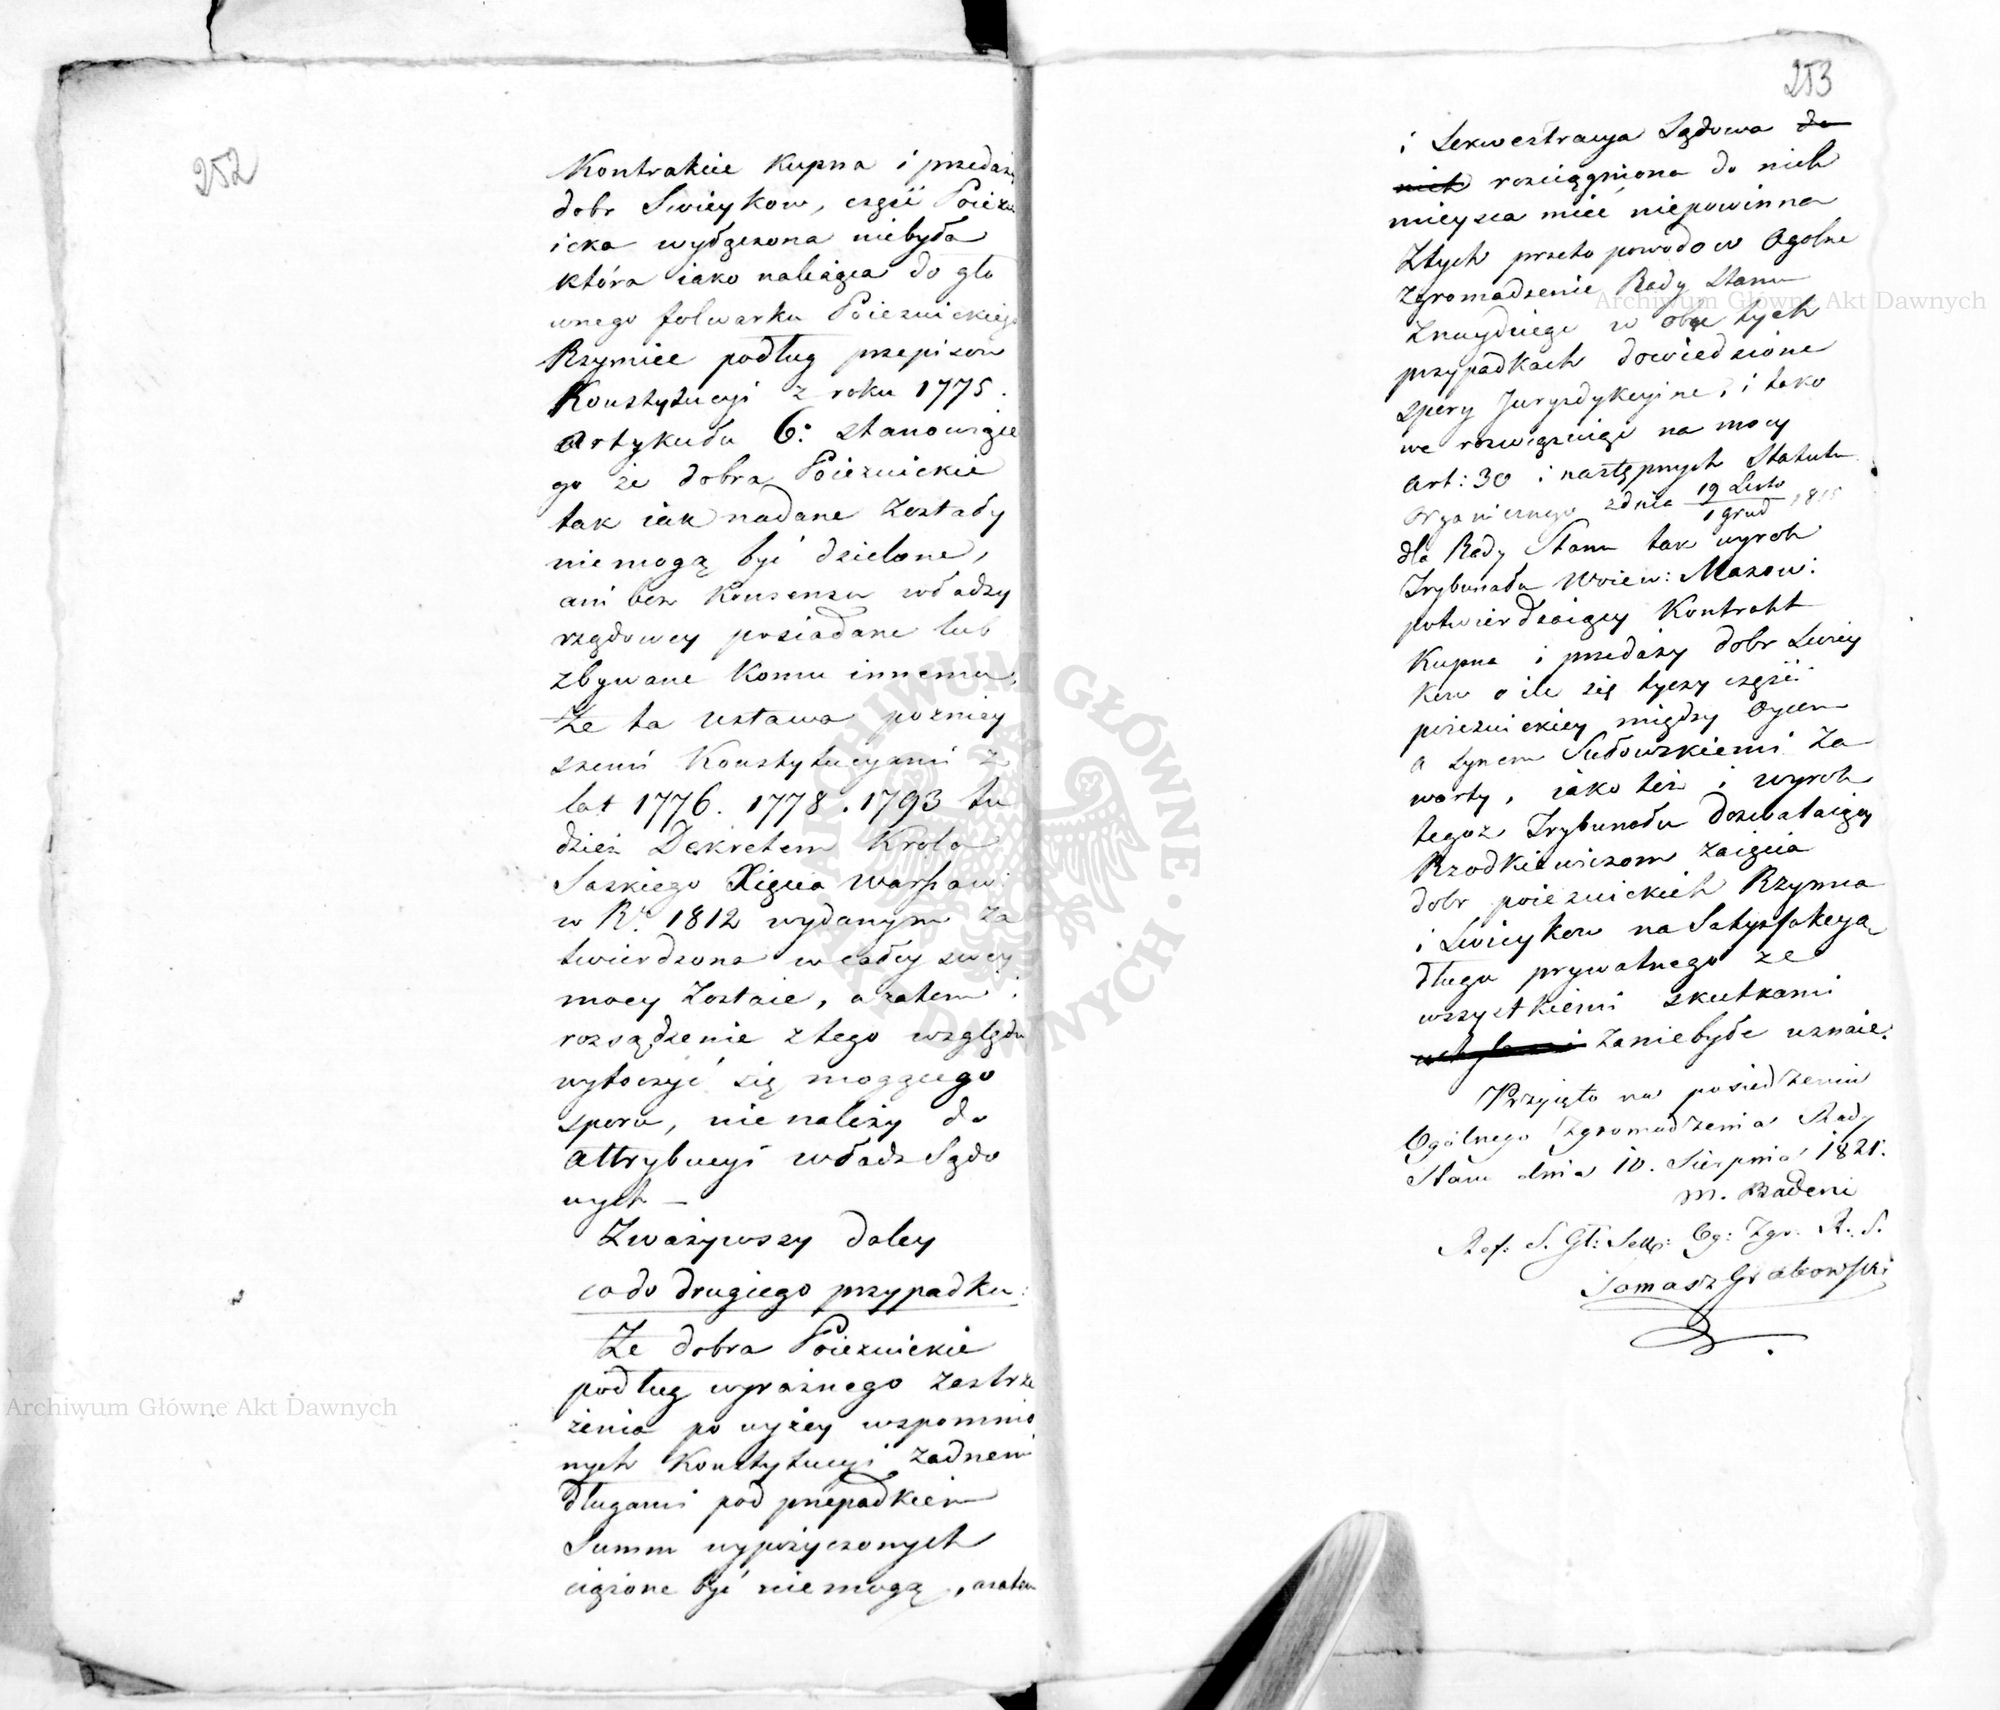 252
Kontrakcie Kupna i przedaży
dobr Swieykow, część Poiezu
icka wyłączona niebyła
która iako należąca do głó
wnego folwarku Poiezuickiego
Rzymiec podług przepisow
Konstytucyi z roku 1775.
Artykułu 6º stanowiące
go że dobra Poiezuickie
tak iak nadane zostały
niemogą być dzielone,
ani bez Konsensu władzy
rządowey posiadane lub
zbywane komu innemu,
Że ta ustawa poźniey
szemi Konstytucyami z
lat 1776. 1778. 1793 tu
dzież Dekretem Króla
Saskiego Xięcia Warszaw:
w Rº. 1812 wydanym za
twierdzona w całey swey
mocy zostaie, a zatem i
rozsądzenie z tego względu
wytoczyć się mogącego
sporu, nie należy do
attrybucyi władz Sądo
wych —
Zważywszy daley
co do drugiego przypadku:
Że dobra Poiezuickie
podług wyraźnego zastrze
żenia po wyżey wspomnio
nych Konstytucyi żadnemi
długami pod przepadkiem
Summ wypożyczonych
ciążone być niemogą, azatem
253
i Sekwestracya Sądowa do
nich rozciągniona do nich
mieysca mieć niepowinna
Z tych przeto powodow Ogolne
Zgromadzenie Rady Stanu
Znayduiąc w obu tych
przypadkach dowiedzione
spory Jurysdykcyine, i tako
we rozwiązuiąc na mocy
Art: 30 i następnych Statutu
Organicznego z dnia 19 Listo / 1 grud 1815
dla Rady Stanu tak wyrok
Trybunału Woiew: Mazow:
potwierdzaiący Kontrakt
Kupna i przedaży dobr Swiey
kow o ile się tyczy części
poiezuickiey między Oycem
a synem Sułowskiemi za
warty, iako też i wyrok
tegoż Trybunału dozwalaiący
Rzodkiewiczom zaięcia
dobr poiezuickich Rzymca
i Swieykow na Satysfakcyą
długu prywatnego ze
wszystkiemi skutkami
za niebyłe uznaie.
Przyięto na posiedzeniu
Ogólnego Zgromadzenia Rady
Stanu dnia 10. Sierpnia 1821.
M. Badeni
Ref: S. Gł: Sekr: Og: Zgr: R. S.
Tomasz Grabowski
Archiwum Główne Akt Dawnych
Archiwum Główne Akt Dawnych
ARCHIWUM GŁÓWNE AKT DAWNYCH